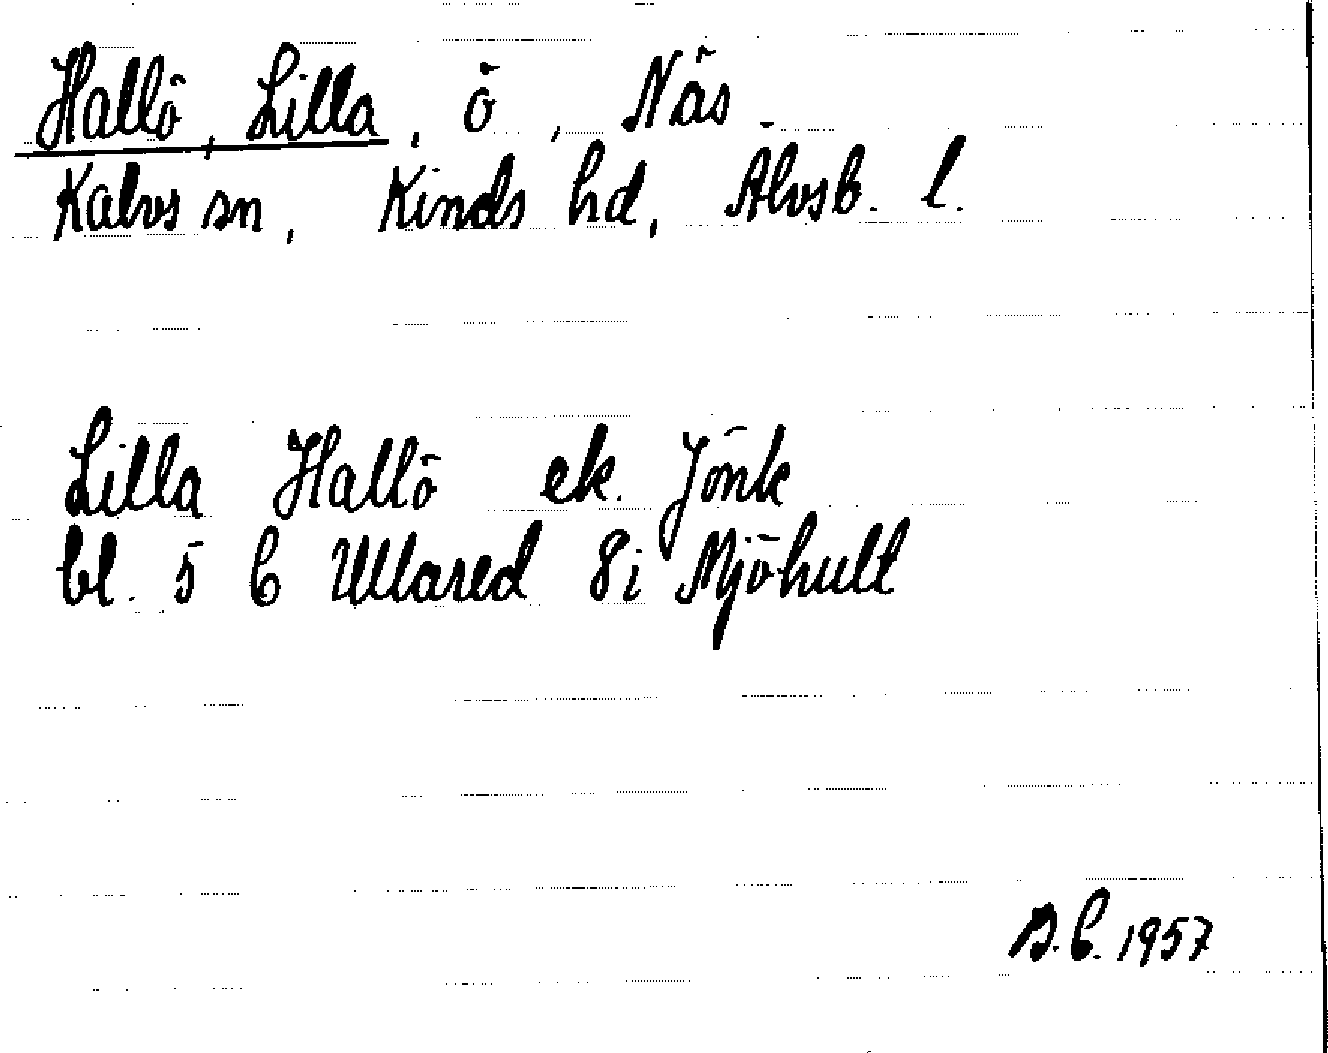 Hallö, Lilla, ö, Näs-
Kalvs sn, Kinds hd, Älvsb. l.
Lilla Hallö ek. Jönk
bl. 5 C Ullared 8i Mjöhult
B.C. 1957